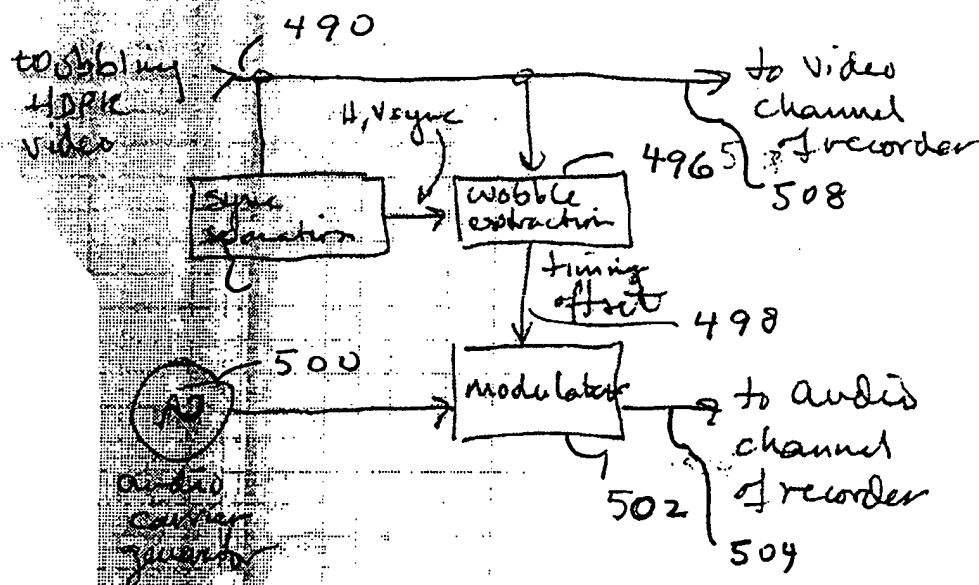 490
wobbling
HDPK
video
to video
channel
of recorder
H, Vsync
496
508
sync
separation
wobble
extraction
timing
offset
498
500
modulator
to audio
channel
of recorder
502
504
audio
carrier
generator